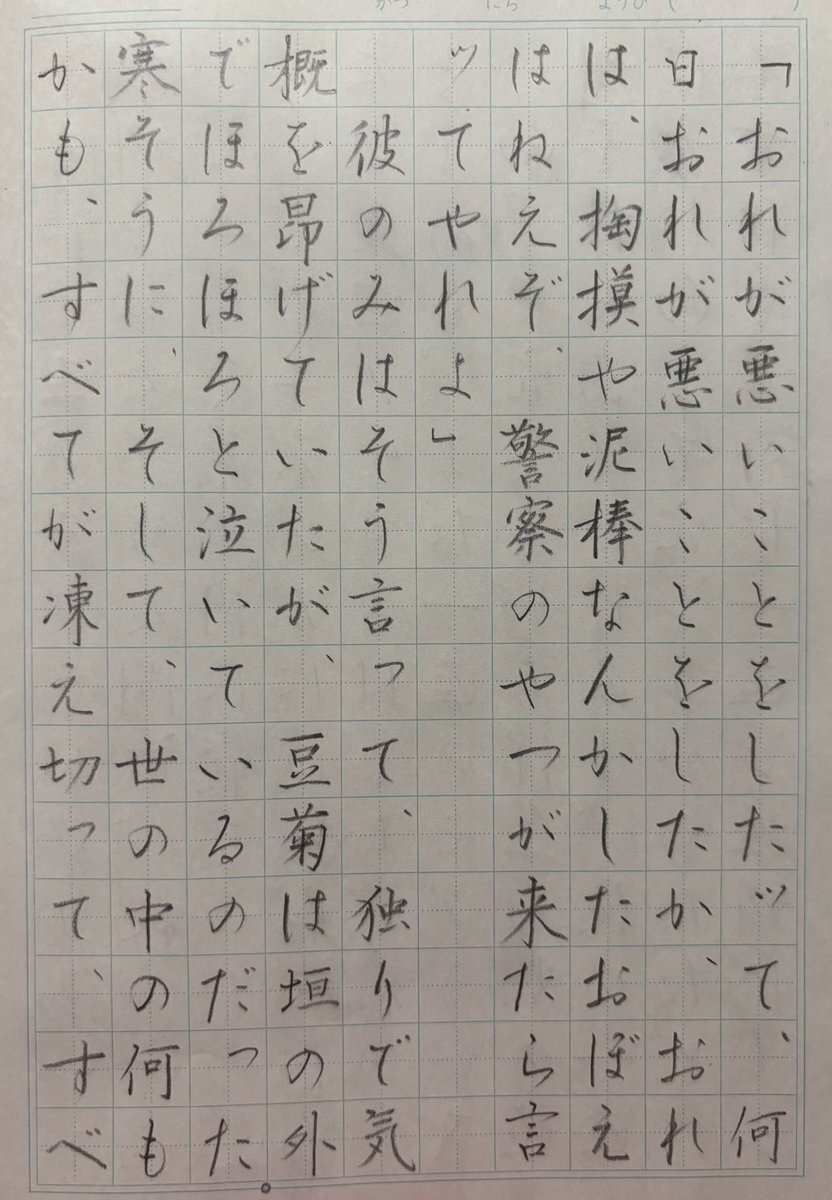 「おれが悪いことをしたッて、何
日おれが悪いことをしたか、おれ
は、掏摸や泥棒なんかしたおぼえ
はねえぞ、警察のやつが来たら言
ッてやれよ」
彼のみはそう言って、独りで気
概を昻げていたが、豆菊は垣の外
でほろほろと泣いているのだった。
寒そうに、そして、世の中の何も
かも、すべてが凍え切って、すべ